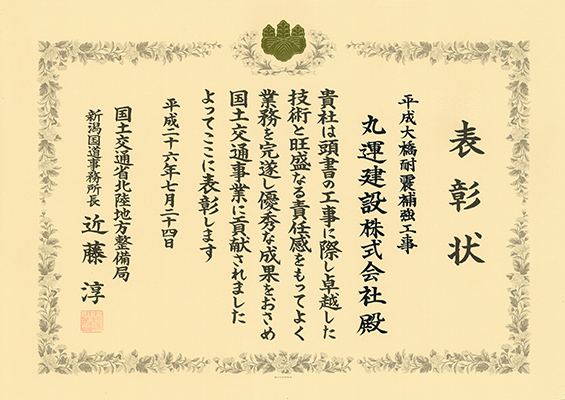 表彰状
平成大橋耐震補強工事
丸運建設株式会社殿
貴社は頭書の工事に際し卓越した
技術と旺盛なる責任感をもってよく
業務を完遂し優秀な成果をおさめ
国土交通事業に貢献されました
よってここに表彰します
平成二十六年七月二十四日
国土交通省北陸地方整備局
新潟国道事務所長 近藤 淳